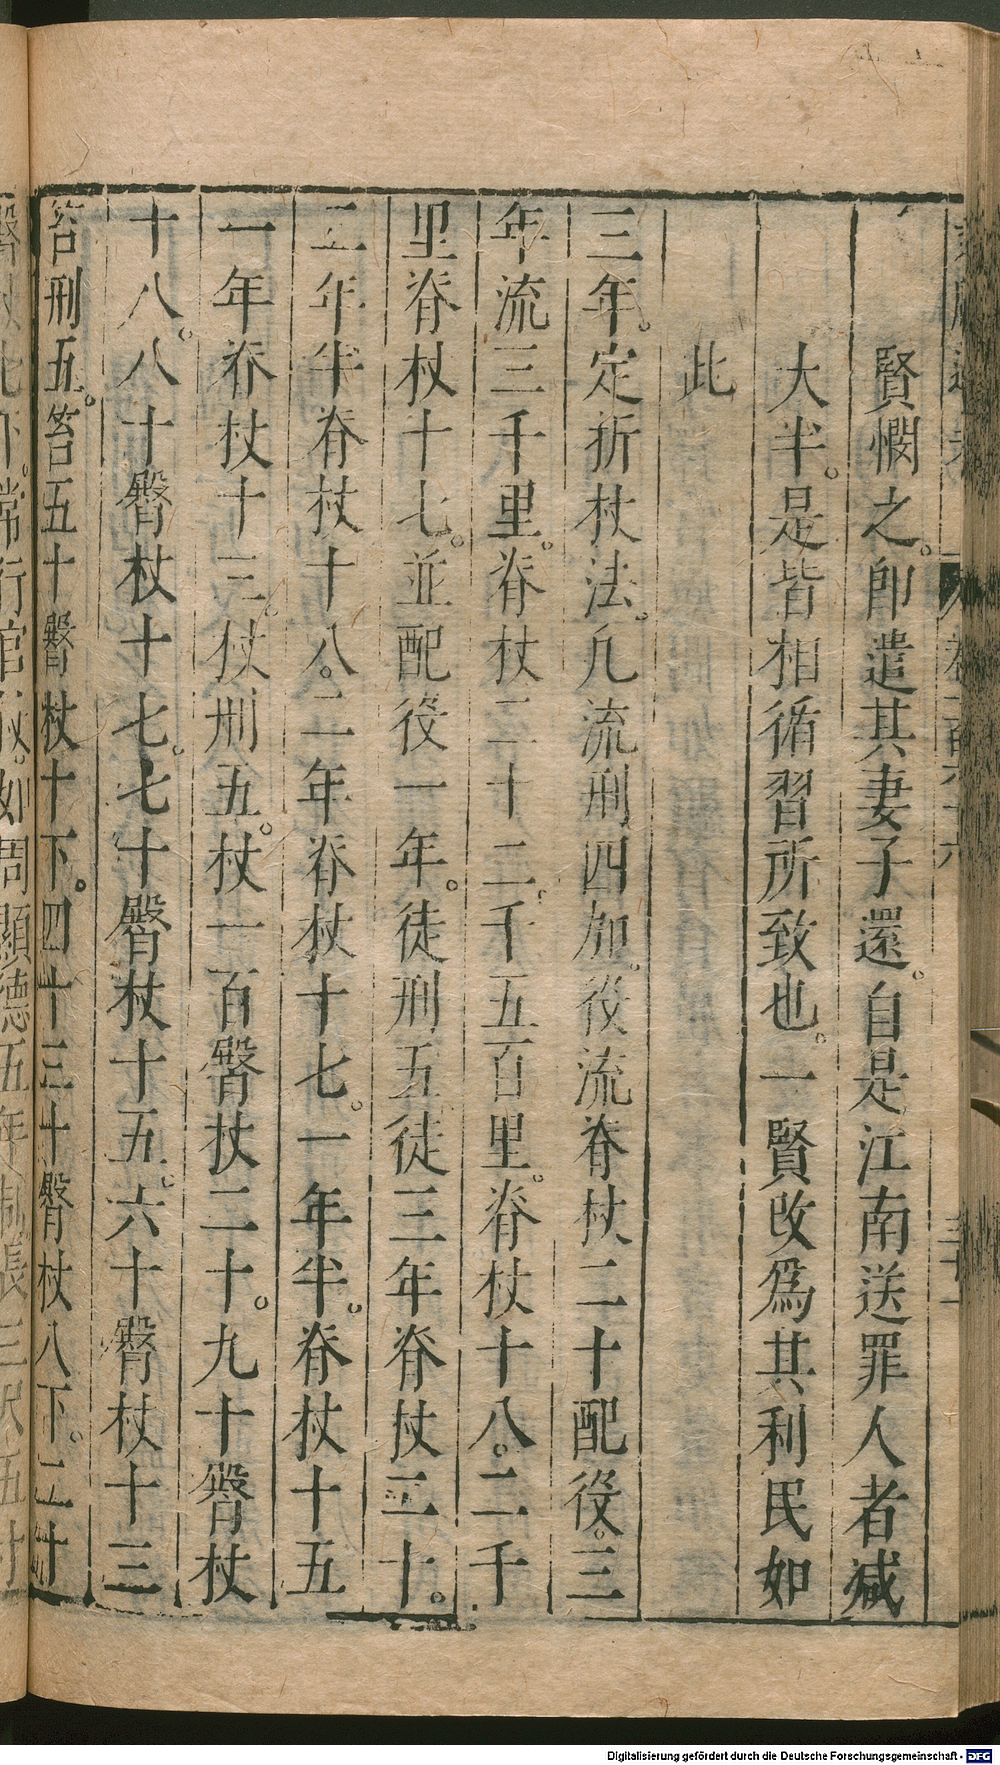 賢憫之。即遣其妻子還。自是江南送罪人者減
大半。是皆相循習所致也。一賢改爲其利民如
此
三年。定折杖法。凡流刑四加。役流脊杖二十配役。三
年流三千里。脊杖二十二。千五百里。脊杖十八。二千
里脊杖十七。並配役一年。徒刑五徒三年脊杖二十。
二年半脊杖十八。二年脊杖十七。一年半。脊杖十五
一年脊杖十三。杖刑五。杖一百臀杖二十。九十臀杖
十八。八十臀杖十七。七十臀杖十五。六十臀杖十三
笞刑五。笞五十臀杖十下。四十三十臀杖八下。二十
臀杖七下。常行官杖。如周顯德五年制長三尺五寸
Digitalisierung gefördert durch die Deutsche Forschungsgemeinschaft - DFG